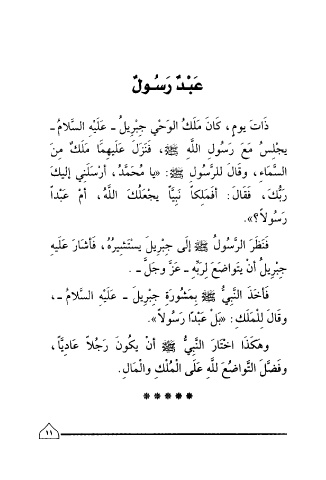 عَبْدٌ رَسُولٌ
ذَاتَ يومٍ، كَانَ مَلَكُ الوَحْيِ جِبْرِيلُ ـ عَلَيْهِ السَّلَامُ ـ
يجْلِسُ مَعَ رَسُولِ اللَّهِ ﷺ، فَنَزَلَ عَلَيهِمَا مَلَكٌ مِنَ
السَّمَاءِ، وقَالَ للرَّسُولِ ﷺ: «يا مُحَمَّدُ، أرْسَلَنِي إليكَ
رَبُّكَ، فَقَالَ: أَفمَلِكاً نَبِيًّا يجعَلُكَ اللَّهُ، أمْ عَبْداً
رَسُولاً؟».
فَنَظَرَ الرَّسُولُ ﷺ إلى جِبْرِيلَ يسْتَشِيرُهُ، فَأشَارَ عَلَيهِ
جِبرِيلُ أنْ يتَواضَعَ لِربِّهِ ـ عَزَّ وجَلَّ ـ .
فَأخَذَ النَّبِيُّ ﷺ بِمَشُورَةِ جِبْرِيلَ ـ عَلَيْهِ السَّلامُ ـ،
وقَالَ لِلْمَلَكِ: «بَلْ عَبْدًا رَسُولاً».
وهَكَذَا اخْتَارَ النَّبِيُّ ﷺ أنْ يكُونَ رَجُلاً عَادِيًّا،
وفَضَّلَ التَّواضُعَ للَّهِ عَلَى الْمُلْكِ والْمَالِ.
*****
١١